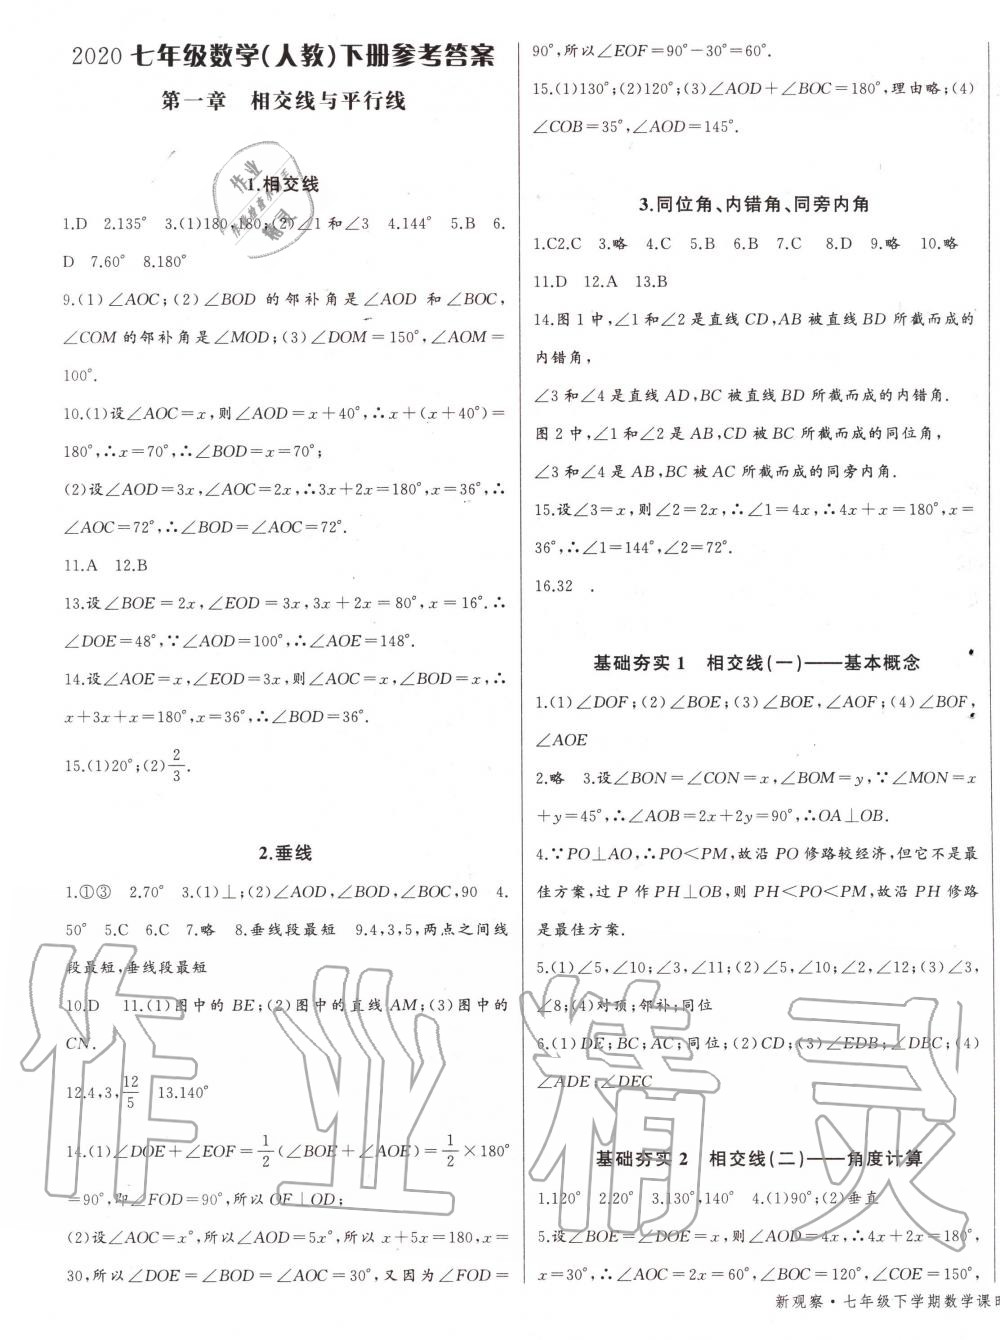 2020 七年级数学(人教)下册参考答案
第一章 相交线与平行线
1.相交线
1.D 2.135° 3.(1)180,180;(2)∠1 和∠3 4.144° 5.B 6.
D 7.60° 8.180°
9.(1)∠AOC;(2)∠BOD 的邻补角是∠AOD 和∠BOC,
∠COM 的邻补角是∠MOD;(3)∠DOM=150°,∠AOM=
100°.
10.(1)设∠AOC=x,则∠AOD=x+40°,∴x+(x+40°)=
180°,∴x=70°,∴∠BOD=70°;
(2)设∠AOD=3x,∠AOC=2x,∴3x+2x=180°,x=36°,∴
∠AOC=72°,∴∠BOD=∠AOC=72°.
11.A 12.B
13.设∠BOE=2x,∠EOD=3x,3x+2x=80°,x=16°.∴
∠DOE=48°,∵∠AOD=100°,∴∠AOE=148°.
14.设∠AOE=x,∠EOD=3x,则∠AOC=x,∠BOD=x,∴
x+3x+x=180°,x=36°,∴∠BOD=36°.
15.(1)20°;(2)2/3.
2.垂线
1.①③ 2.70° 3.(1)⊥;(2)∠AOD,∠BOD,∠BOC,90 4.
50° 5.C 6.C 7.略 8.垂线段最短 9.4,3,5,两点之间线
段最短,垂线段最短
10.D 11.(1)图中的 BE;(2)图中的直线 AM;(3)图中的
CN.
12.4,3,12/5 13.140°
14.(1)∠DOE+∠EOF=1/2(∠BOE+∠AOE)=1/2×180°
=90°,即∠FOD=90°,所以 OF⊥OD;
(2)设∠AOC=x°,所以∠AOD=5x°,所以 x+5x=180,x=
30,所以∠DOE=∠BOD=∠AOC=30°,又因为∠FOD=
90°,所以∠EOF=90°-30°=60°.
15.(1)130°;(2)120°;(3)∠AOD+∠BOC=180°,理由略;(4)
∠COB=35°,∠AOD=145°.
3.同位角、内错角、同旁内角
1.C2.C 3.略 4.C 5.B 6.B 7.C 8.D 9.略 10.略
11.D 12.A 13.B
14.图 1 中,∠1 和∠2 是直线 CD,AB 被直线 BD 所截而成的
内错角,
∠3 和∠4 是直线 AD,BC 被直线 BD 所截而成的内错角.
图 2 中,∠1 和∠2 是 AB,CD 被 BC 所截而成的同位角,
∠3 和∠4 是 AB,BC 被 AC 所截而成的同旁内角.
15.设∠3=x,则∠2=2x,∴∠1=4x,∴4x+x=180°,x=
36°,∴∠1=144°,∠2=72°.
16.32 .
基础夯实 1 相交线(一)——基本概念
1.(1)∠DOF;(2)∠BOE;(3)∠BOE,∠AOF;(4)∠BOF,
∠AOE
2.略 3.设∠BON=∠CON=x,∠BOM=y,∵∠MON=x
+y=45°,∴∠AOB=2x+2y=90°,∴OA⊥OB.
4.∵PO⊥AO,∴PO<PM,故沿 PO 修路较经济,但它不是最
佳方案,过 P 作 PH⊥OB,则 PH<PO<PM,故沿 PH 修路
是最佳方案.
5.(1)∠5,∠10;∠3,∠11;(2)∠5,∠10;∠2,∠12;(3)∠3,
∠8;(4)对顶;邻补;同位
6.(1)DE;BC;AC;同位;(2)CD;(3)∠EDB;∠DBC;(4)
∠ADE;∠DEC
基础夯实 2 相交线(二)——角度计算
1.120° 2.20° 3.130°,140° 4.(1)90°;(2)垂直
5.设∠BOE=∠DOE=x,则∠AOD=4x,∴4x+2x=180°,
x=30°,∴∠AOC=2x=60°,∠BOC=120°,∠COE=150°,
新观察·七年级下学期数学课时
作业精灵